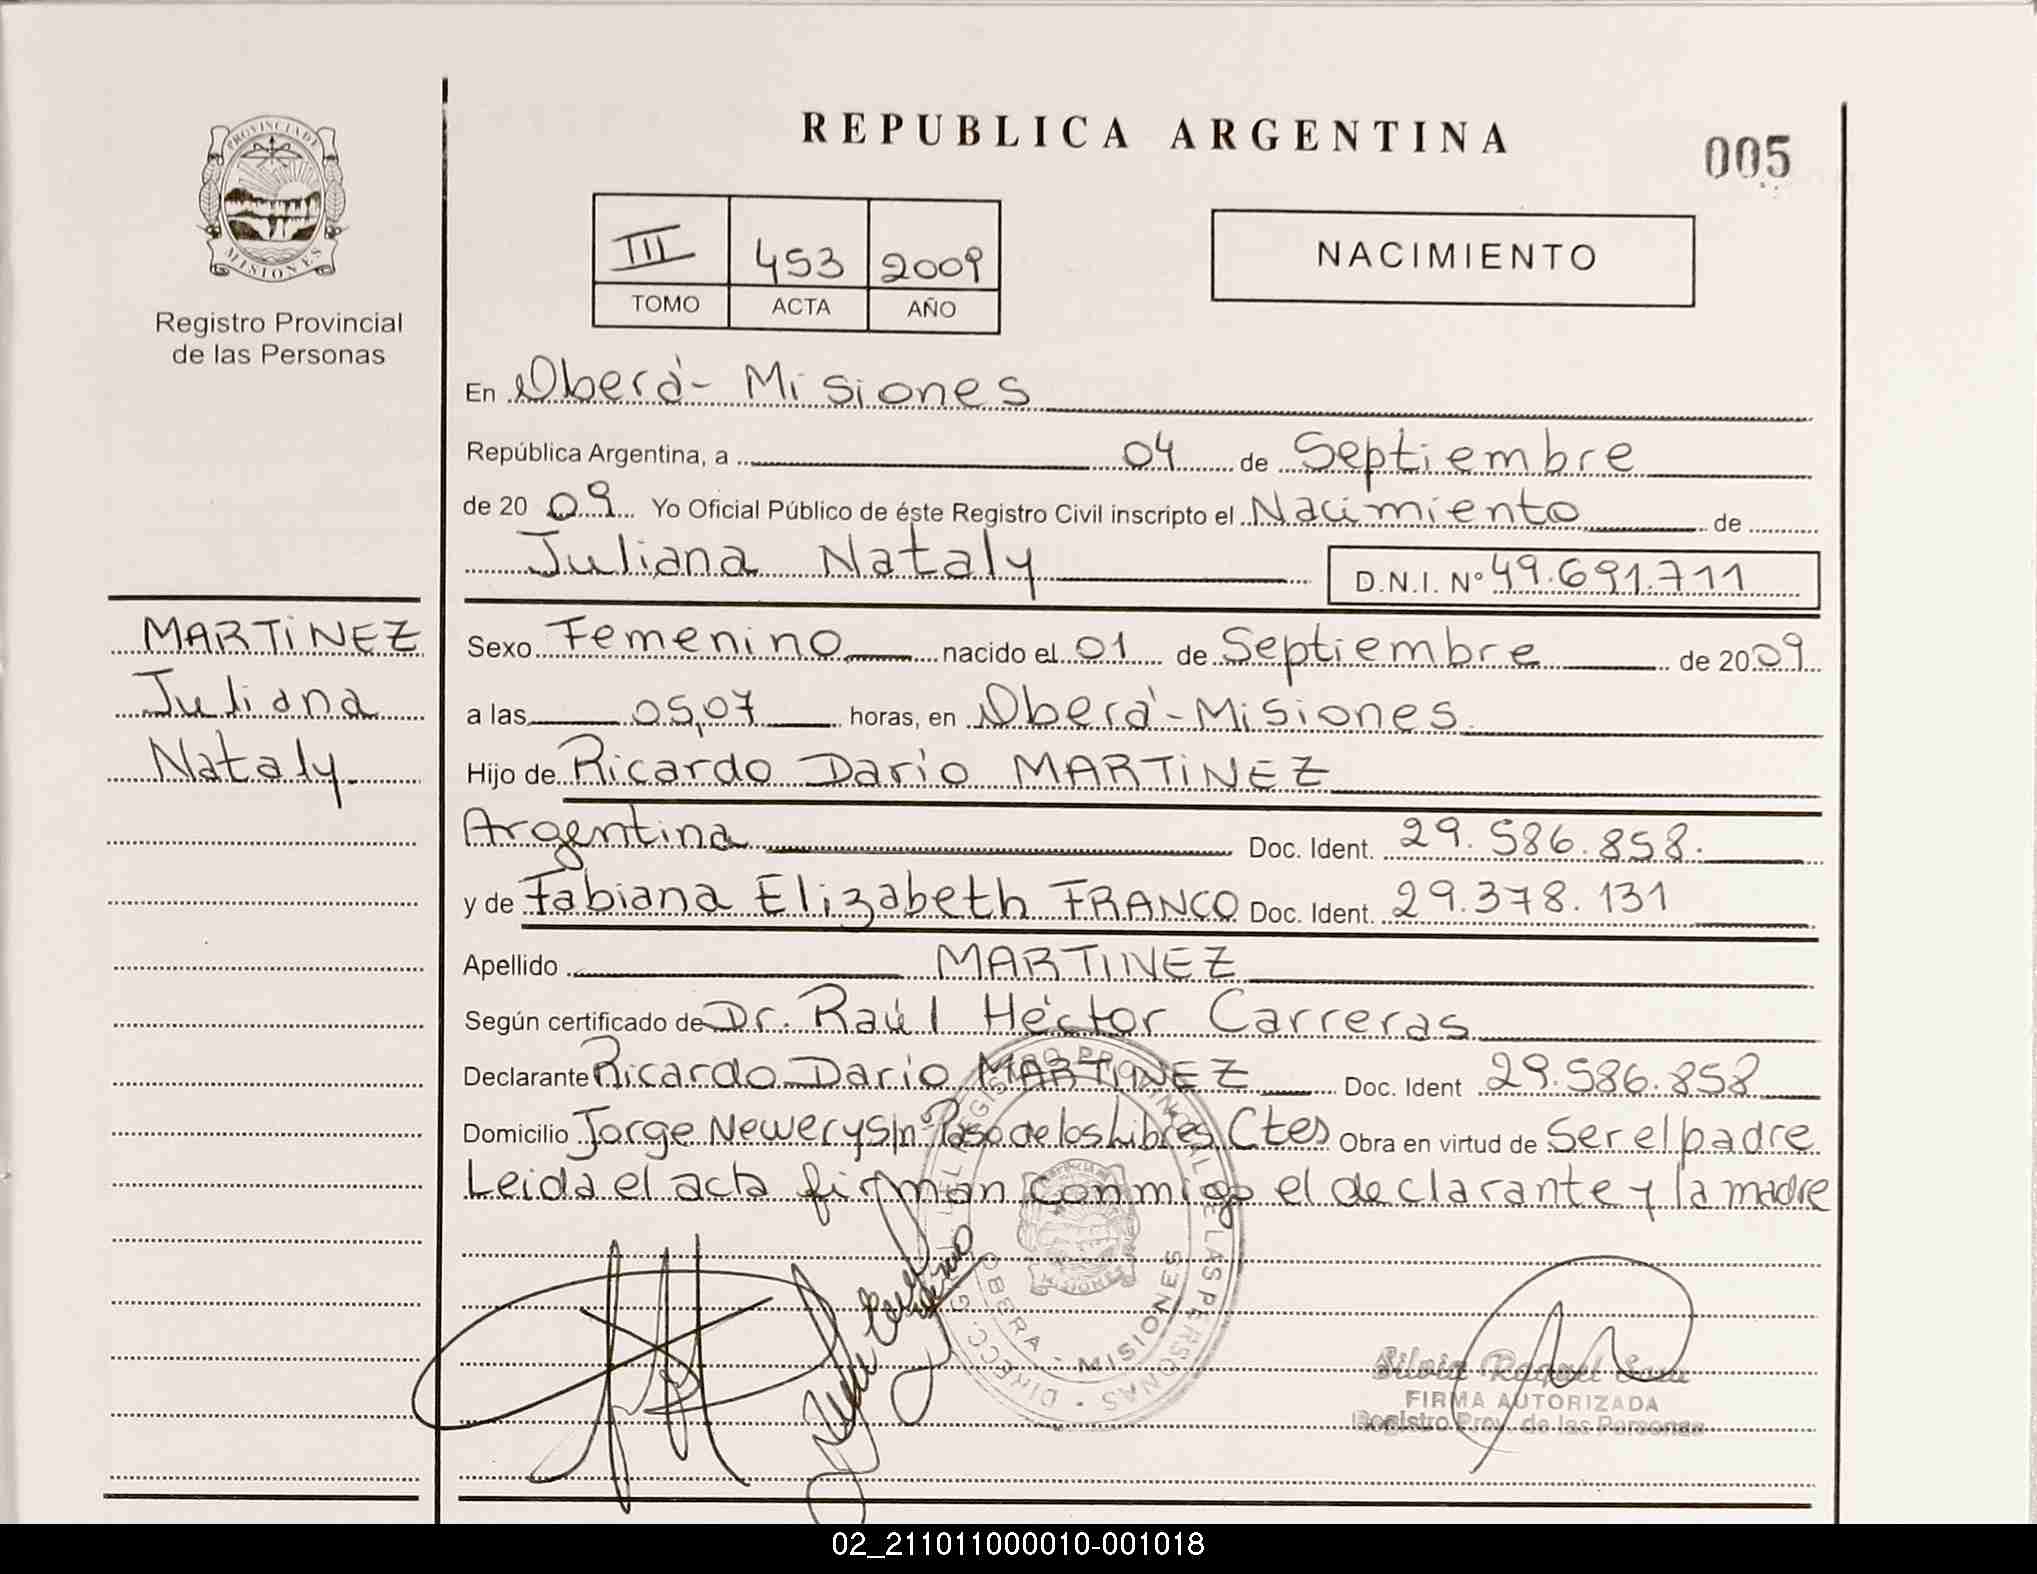 PROVINCIA DE
MISIONES
Registro Provincial
de las Personas
REPUBLICA ARGENTINA
005
III 453 2009
TOMO ACTA AÑO
NACIMIENTO
En Oberá - Misiones
República Argentina, a 04 de Septiembre
de 20 09 Yo Oficial Público de éste Registro Civil inscripto el Nacimiento de
Juliana Nataly D.N.I. Nº 49.691.711
MARTINEZ
Juliana
Nataly
Sexo Femenino nacido el 01 de Septiembre de 2009
a las 05,07 horas, en Oberá - Misiones
Hijo de Ricardo Dario MARTINEZ
Argentina Doc. Ident. 29.586.858.
y de Fabiana Elizabeth FRANCO Doc. Ident. 29.378.131
Apellido MARTINEZ
Según certificado de Dr. Raúl Héctor Carreras
Declarante Ricardo Dario MARTINEZ Doc. Ident 29.586.858
Domicilio Jorge Newery s/nº Paso de los Libres Ctes Obra en virtud de Ser el padre
Leida el acta firman conmigo el declarante y la madre
REGISTRO PROVINCIAL DE LAS PERSONAS
OBERA - MISIONES
Silvia Raquel
FIRMA AUTORIZADA
Registro Prov. de las Personas
02_211011000010-001018